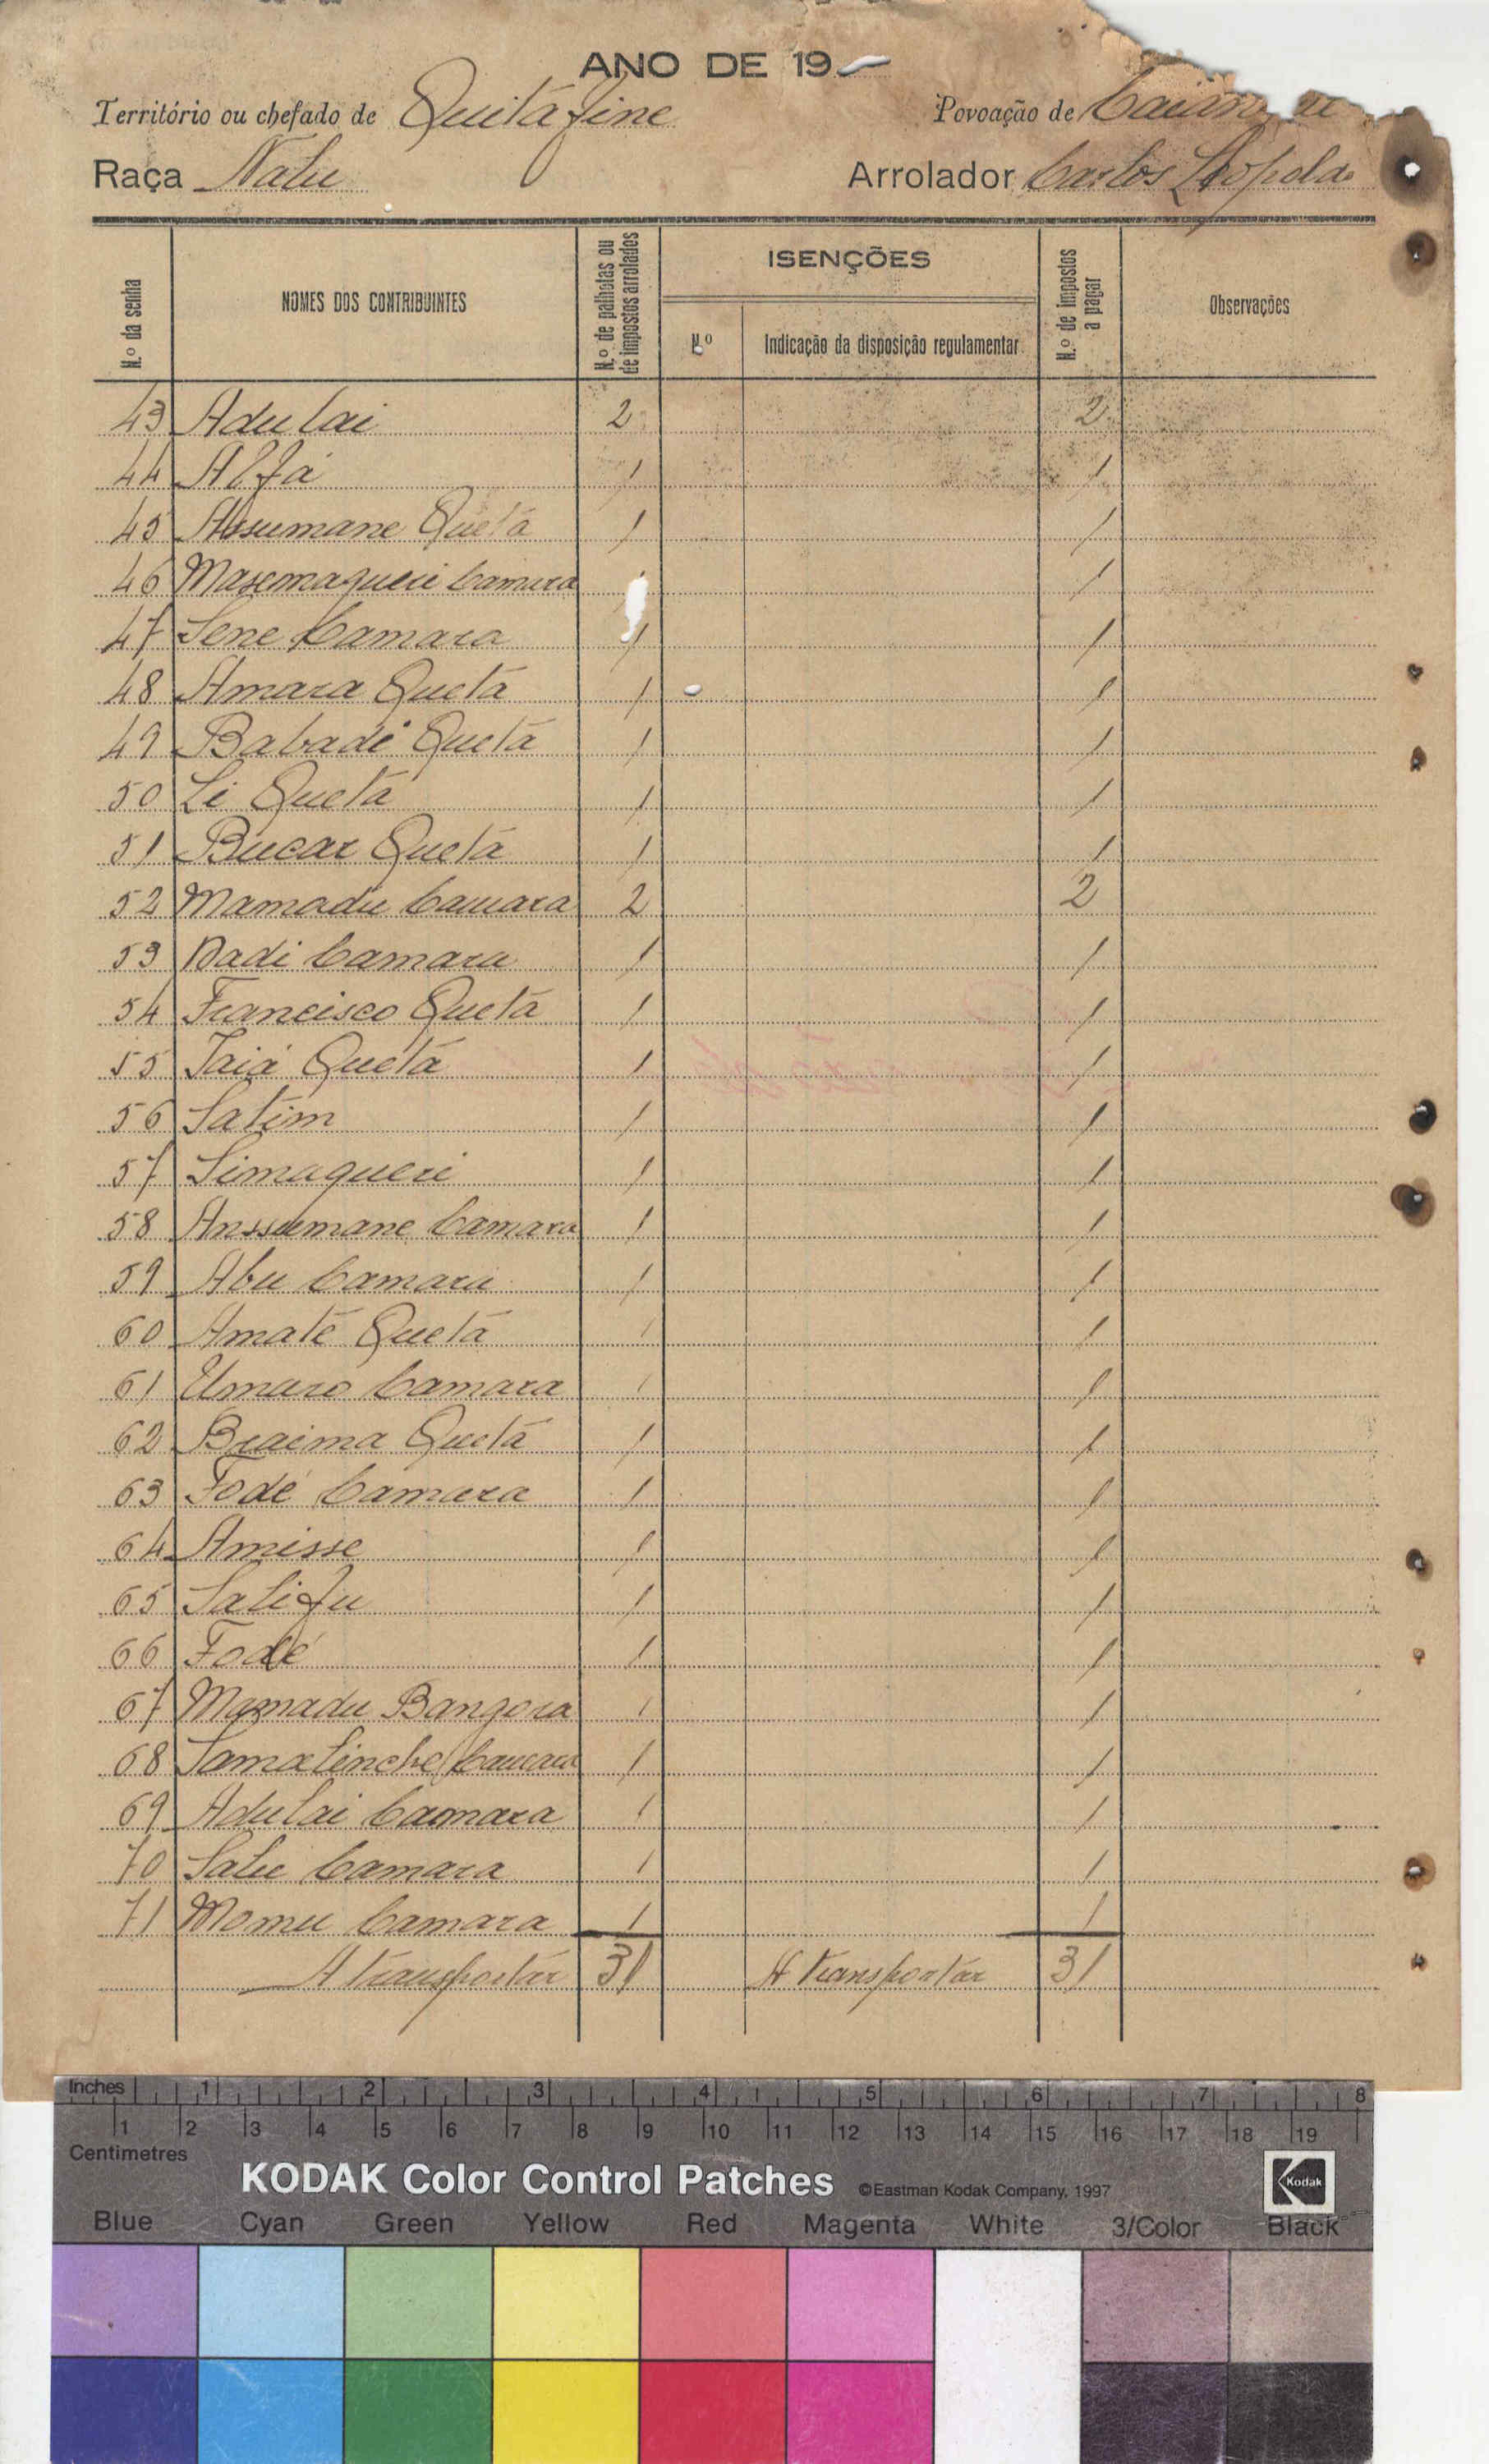 ANO DE 19
Território ou chefado de Quitáfine Povoação de
Raça Nalu Arrolador Carlos Leopoldo
N.º da senha NOMES DOS CONTRIBUINTES N.º de palhotas ou de impostos arrolados ISENÇÕES N.º de impostos a pagar Observações
N.º Indicação da disposição regulamentar
43 Adulai 2 2
44 Alfá 1 1
45 Assumane Quetá 1 1
46 Masemaqueri Camara 1
47 Sene Camara 1 1
48 Amara Quetá 1 1
49 Babadi Quetá 1 1
50 Li Quetá 1 1
51 Bucar Quetá 1 1
52 Mamadu Camara 2 2
53 Dadi Camara 1 1
54 Francisco Quetá 1 1
55 Iaiá Quetá 1 1
56 Satim 1 1
57 Simaqueri 1 1
58 Anssumane Camara 1 1
59 Abu Camara 1 1
60 Amaté Quetá 1 1
61 Umaro Camara 1 1
62 Braima Quetá 1 1
63 Fodé Camara 1 1
64 Amisse 1 1
65 Salifu 1 1
66 Fodé 1 1
67 Mamadu Bangora 1 1
68 Camara 1 1
69 Adulai Camara 1 1
70 Salu Camara 1 1
71 Momu Camara 1 1
A transportar 31 A transportar 31
Inches 1 2 3 4 5 6 7 8
1 2 3 4 5 6 7 8 9 10 11 12 13 14 15 16 17 18 19
Centimetres
KODAK Color Control Patches ©Eastman Kodak Company, 1997 Kodak
Blue Cyan Green Yellow Red Magenta White 3/Color Black